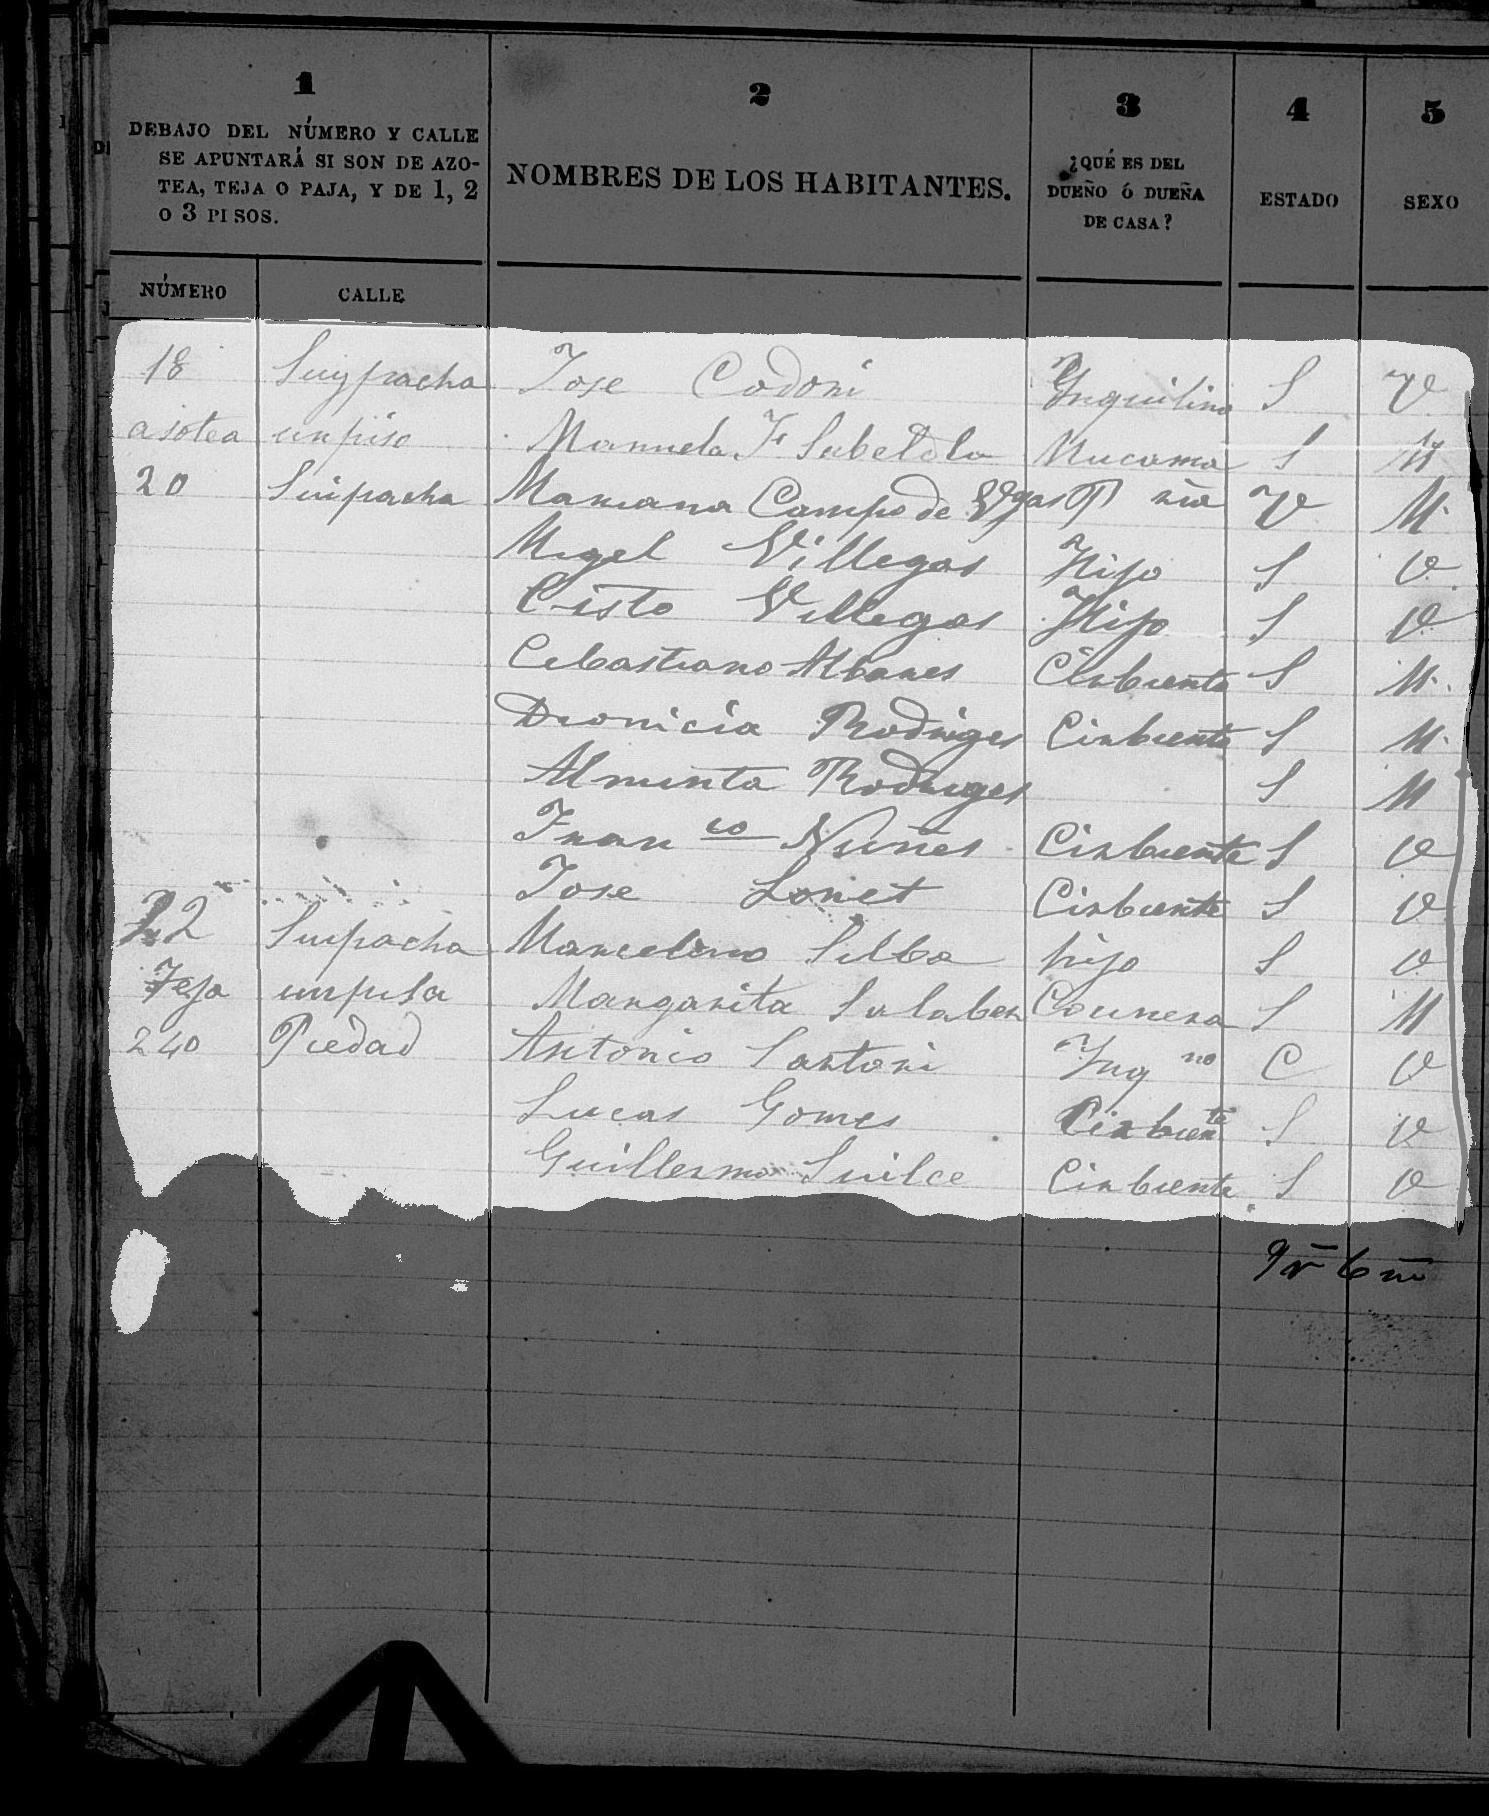 1 2 3 4 5
DEBAJO DEL NÚMERO Y CALLE
SE APUNTARÁ SI SON DE AZO-
TEA, TEJA O PAJA, Y DE 1, 2
O 3 PISOS.
NOMBRES DE LOS HABITANTES.
¿QUÉ ES DEL
DUEÑO Ó DUEÑA
DE CASA?
ESTADO
SEXO
NÚMERO CALLE
18 Suypacha Jose Codoni Ynquilino S V
asotea un piso Manuela F Sabetola Mucama S M
20 Suipacha Mariana Campo de Vgas P ria V M
Migel Villegas Hijo S V
Cisto Villegas Hijo S V
Cebastiana Albares Cirbienta S M
Dionicia Rodriges Cirbienta S M
Alminta Rodriges S M
Fran co Nuñes Cirbiente S V
Jose Lonet Cirbiente S V
22 Suipacha Marcelino Silba hijo S V
Teja un pisa Margarita Salaber Cocinera S M
240 Piedad Antonio Santoni Ynq no C V
Lucas Gomes Cirbien te S V
Guillermo Suilce Cirbiente S V
9 v 6 m